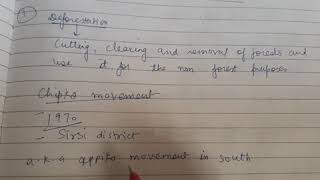 1
Deforestation
Cutting, clearing and removal of forests and
use it for the non forest purposes
Chipko movement
- 1970
- Sirsi district
a.k.a appiko movement in south